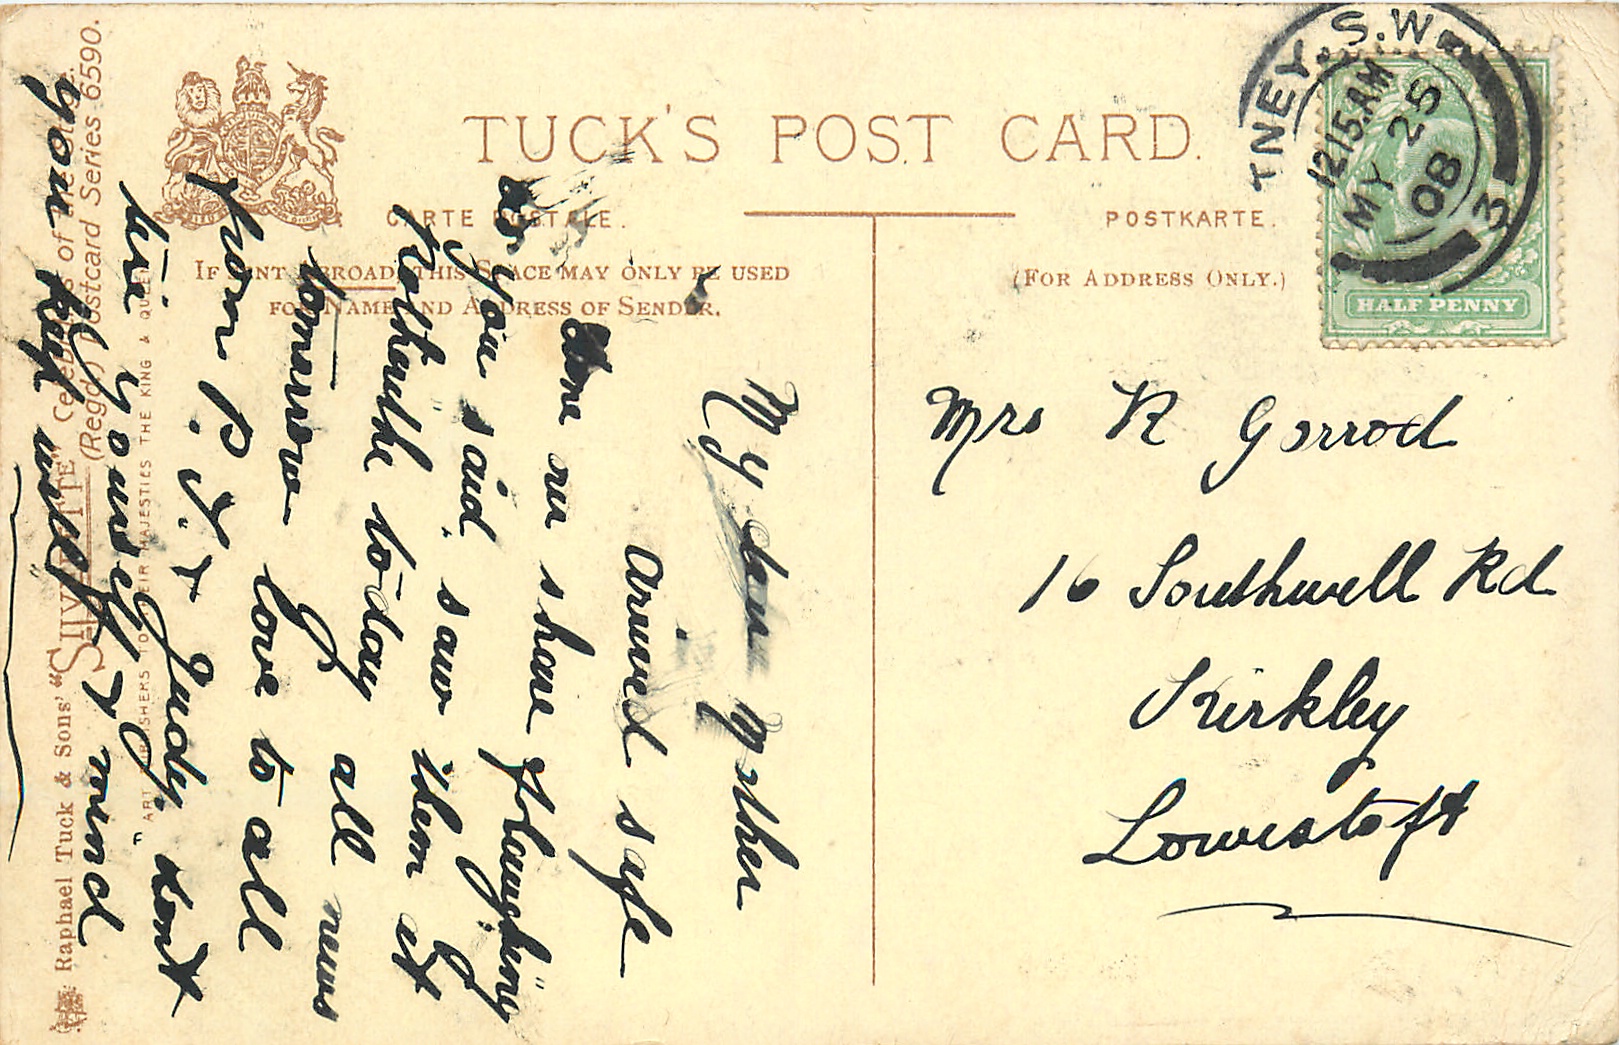 TUCK'S POST CARD.
CARTE POSTALE.
POSTKARTE.
IF SENT ABROAD, THIS SPACE MAY ONLY BE USED
FOR NAME AND ADDRESS OF SENDER.
(FOR ADDRESS ONLY.)
TNEY. S.W.
12 15. AM
MY 25
08
3
HALF PENNY
Mrs R Gorrod
16 Southwell Rd
Kirkley
Lowestoft
My dear Mother
arived safe
me
as you said, saw them at
to-day all
tomorrow love to all
from P. J. + Judy, "dont
tire yourself + mind
you keep well"
Raphael Tuck & Sons' "SILVERETTE" Celebrities of the
(Regd.) Postcard Series 6590.
ART PUBLISHERS TO THEIR MAJESTIES THE KING & QUEEN